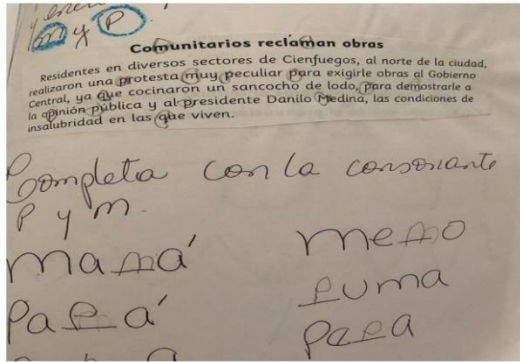 m y P
Comunitarios reclaman obras
Residentes en diversos sectores de Cienfuegos, al norte de la ciudad,
realizaron una protesta muy peculiar para exigirle obras al Gobierno
Central, ya que cocinaron un sancocho de lodo, para demostrarle a
la opinión pública y al presidente Danilo Medina, las condiciones de
insalubridad en las que viven.
Completa con la consonante
P y m.
mamá memo
Papá puma
papa